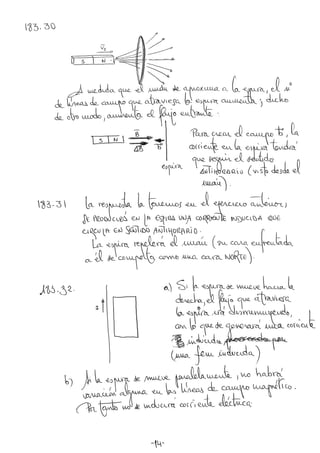 183.30
V
S N
A medida que el imán se aproxima a la espira, el nº
de líneas de campo que atraviesa la espira aumenta; dicho
de otro modo, aumenta el flujo entrante.
S N B
ΔB b
espira
Para crear el campo b, la
corriente en la espira tendrá
que seguir el sentido
ANTIHORARIO (visto desde el
imán).
183-31 La respuesta la tenemos en el ejercicio anterior;
SE PRODUCIRÁ EN LA ESPIRA UNA CORRIENTE INDUCIDA QUE
CIRCULA EN SENTIDO ANTIHORARIO.
La espira repelerá el imán (su cara enfrentada
a él se comporta como una cara NORTE).
183-32.
a) Si la espira se mueve hacia la
derecha, el flujo que atraviesa
la espira irá disminuyendo,
con lo que se generará una corriente
inducida
(una fem inducida)
b) Si la espira se mueve paralelamente, no habrá
variación alguna en las líneas de campo magnético.
Por tanto no se inducirá corriente eléctrica.
-14-